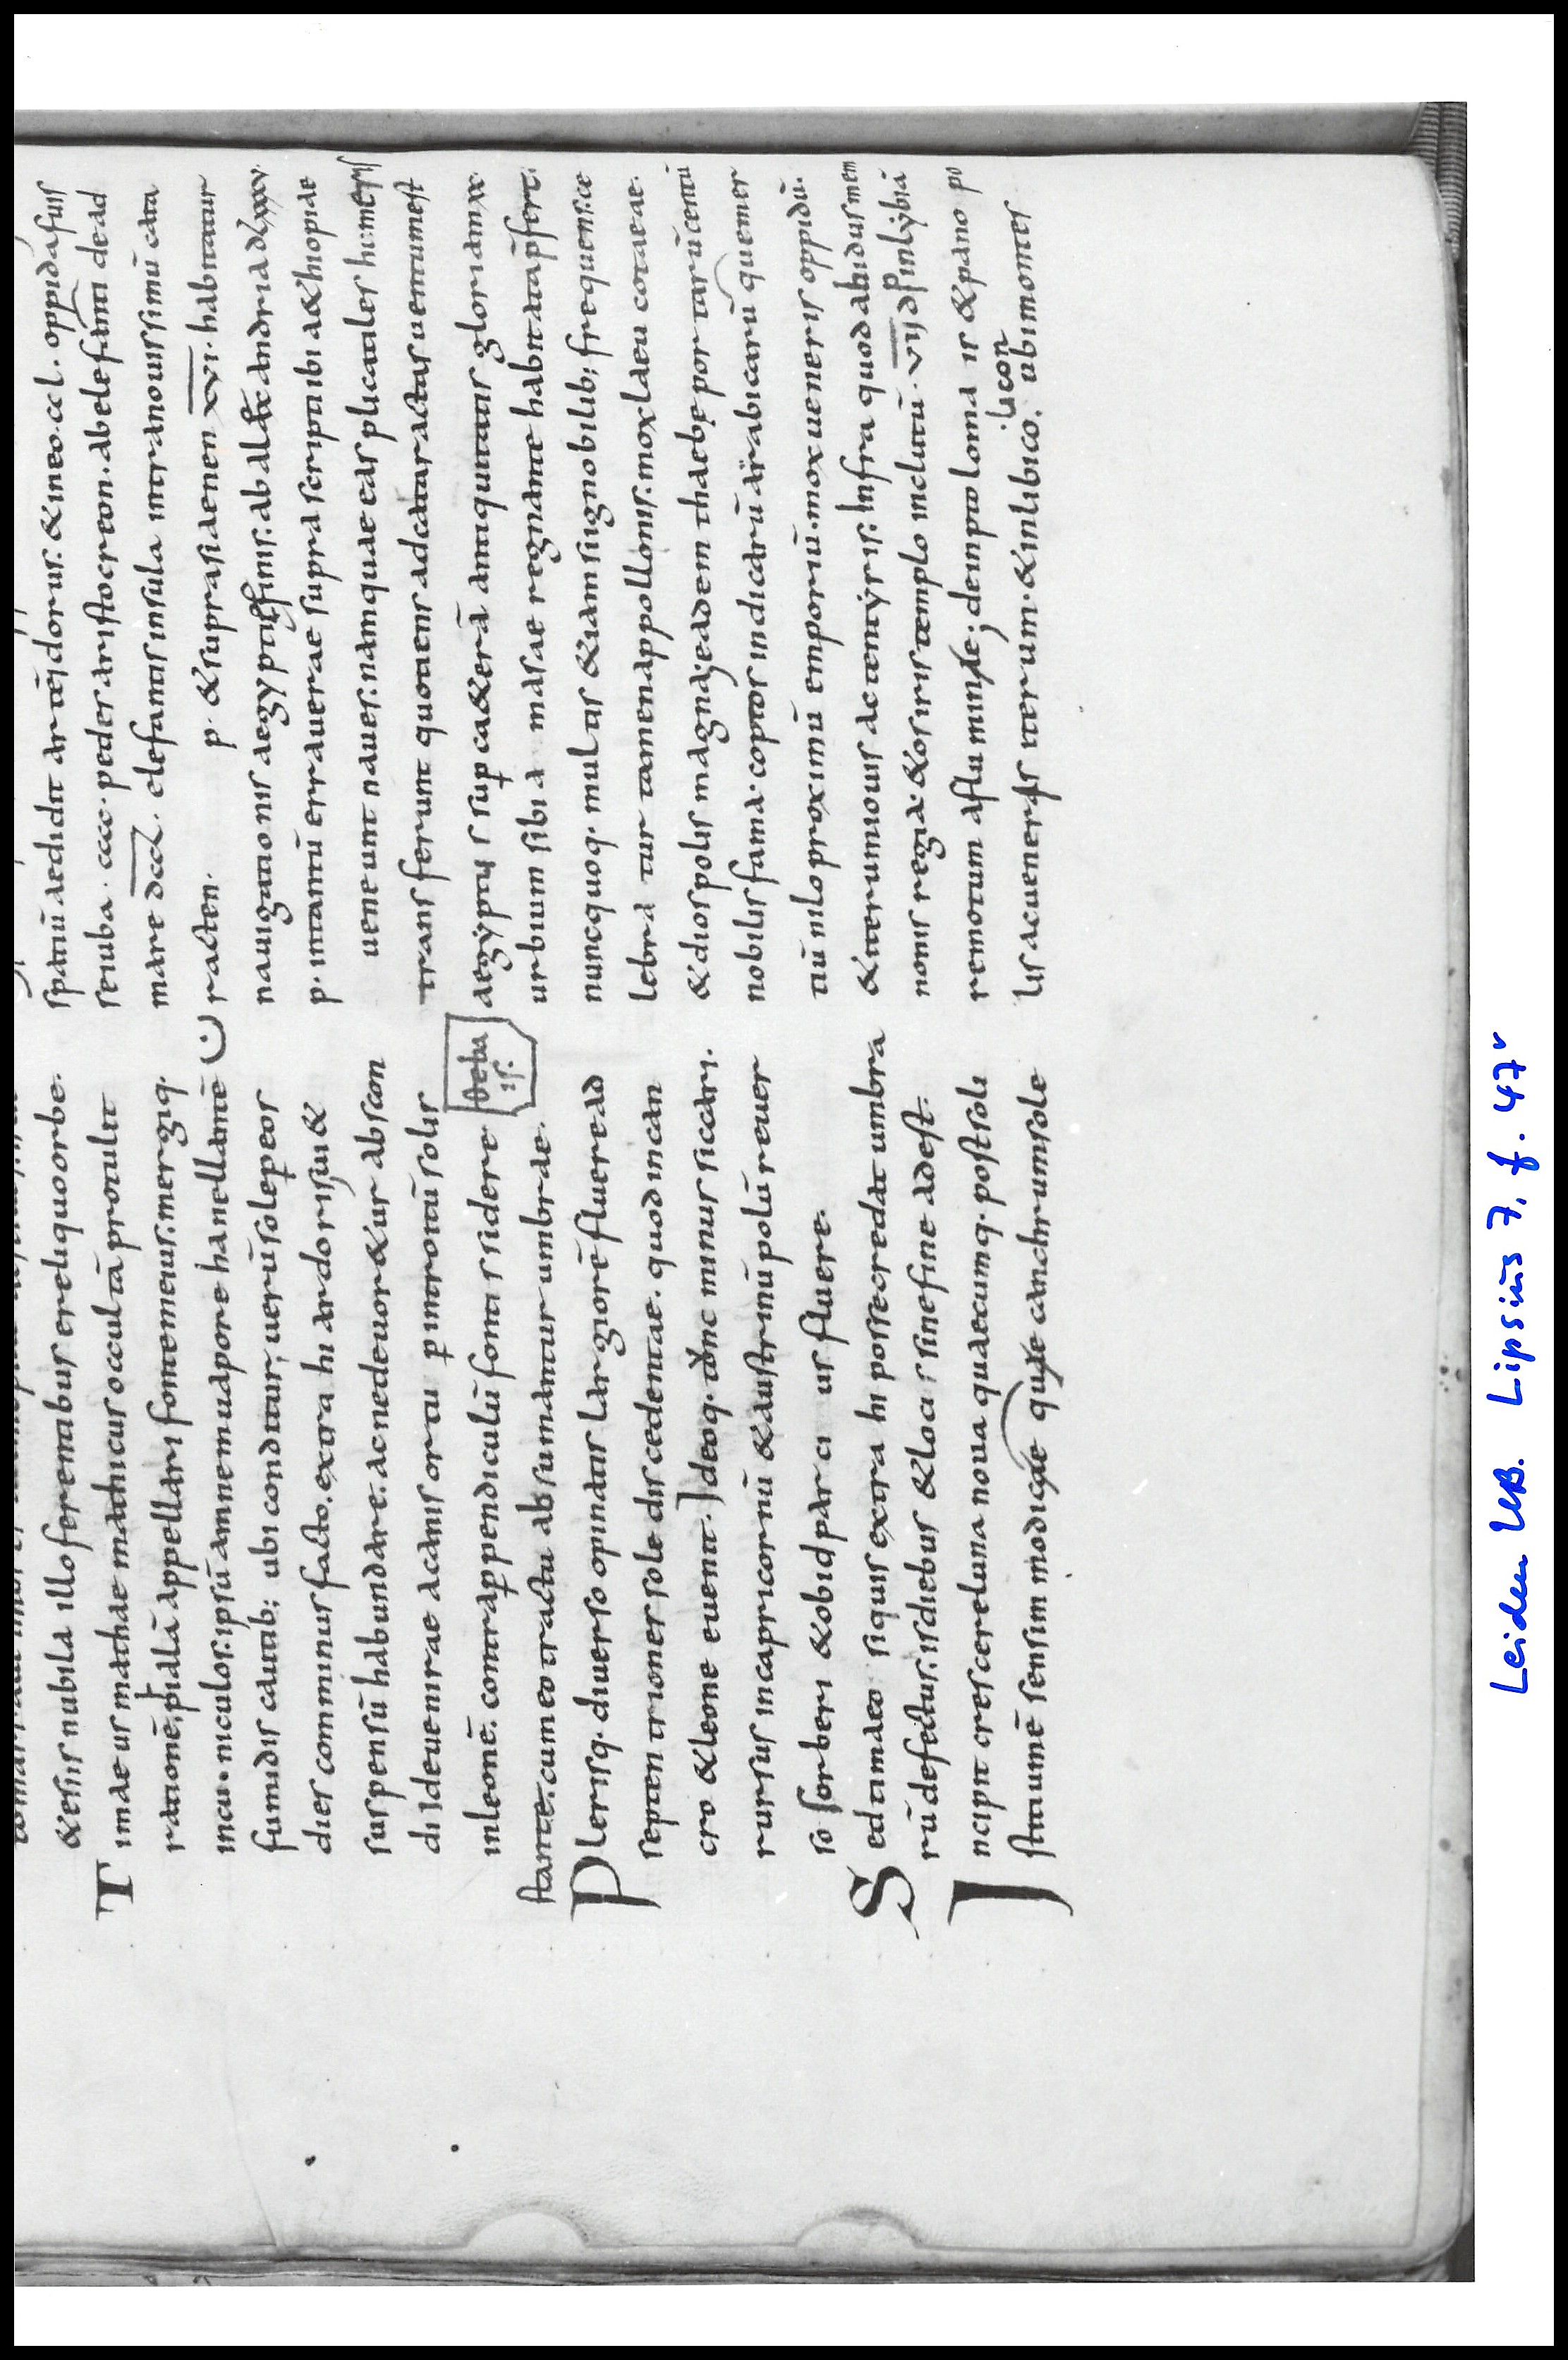 & esiis nubila illo ferentibus e reliquo orbe.
Timaeus mathae mathicus occultā protulit
rationē. phialā appellari fontem eius. mergiq.
incuniculos. ipsū amnem uapore hanellantē
fumidis cautib; ubi conditur, uerū sole p eos
dies comminus facto. extra hi ardoris ui &
suspensū habundare. ac ne deuor&ur abscon
di. Id euenirae a canis ortu p introitū solis
in leonē. contra ppendiculū fonti ssidere
stante. cum eo tractu absumantur umbrae.
Plerisq. diuerso opinatis largiorē fluere ad
septentriones sole discedentae. quod in can
cro & leone euenit. Ideoq. tunc minus siccari.
rursus in capricornū & austrinū polū reuer
so sorberi & ob id parcius fluere.
Sed timaeo siquis extra hi posse credat umbra
rū defectus. is diebus & locis sine fine adest.
Incipit crescere luna noua quaecumq. post sol
stitium ē sensim modicae quae canchrum sole
spatiū aedidit artēidorus. & in eo .ccl. oppida fuis
se iuba .cccc. pedes aristocreon. ab elefanti de ad
mare dccl. elefantis insula intra nouissimū cata
racten. p. & supra siaenen xvi. habitatur
nauigationis aegypti finis. ab alexandria dlxxxv.
p. intantū errauerae supra scripti ibi aethiopiae
uene unt naues. namquae eas plicatiles humeris
transferunt quotiens ad cataractas uentum est
aegÿptus sup ca&erā antiquitatis gloriam xx.
urbium sibi amasae regnante habitata p̄fert.
nuncquoq. multis & iam si ignobilib; frequens. ce
lebratur tamen appollonis. mox laeu cotaeae.
& diospolis magna. eadem thaebe portarū centū
nobilis fama. coptos indicarū ärabicarū quemer
tiū nilo proximū emporiū. mox ueneris oppidū.
& iterum iouis ac tentÿris. Infra quod abidus mem
nonis regia. & osiris templo inclutū. vii d p in lÿbiā
remotum a flumine; dein ptolomais & pano po
lis ac ueneris iterum. & in libico. licon ubi montes
deba
is.
Leiden UB. Lipsius 7, f. 47v